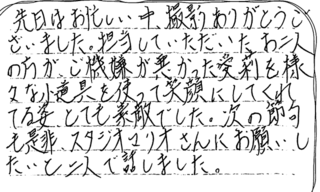 先日はお忙しい中、撮影ありがとうご
ざいました。担当していただいたお二人
の方が、ご機嫌が悪かった愛莉を様
々な小道具を使って笑顔にしてくれ
てる姿とても素敵でした。次の節句
も是非、スタジオマリオさんにお願いし
たいと二人で話しました。